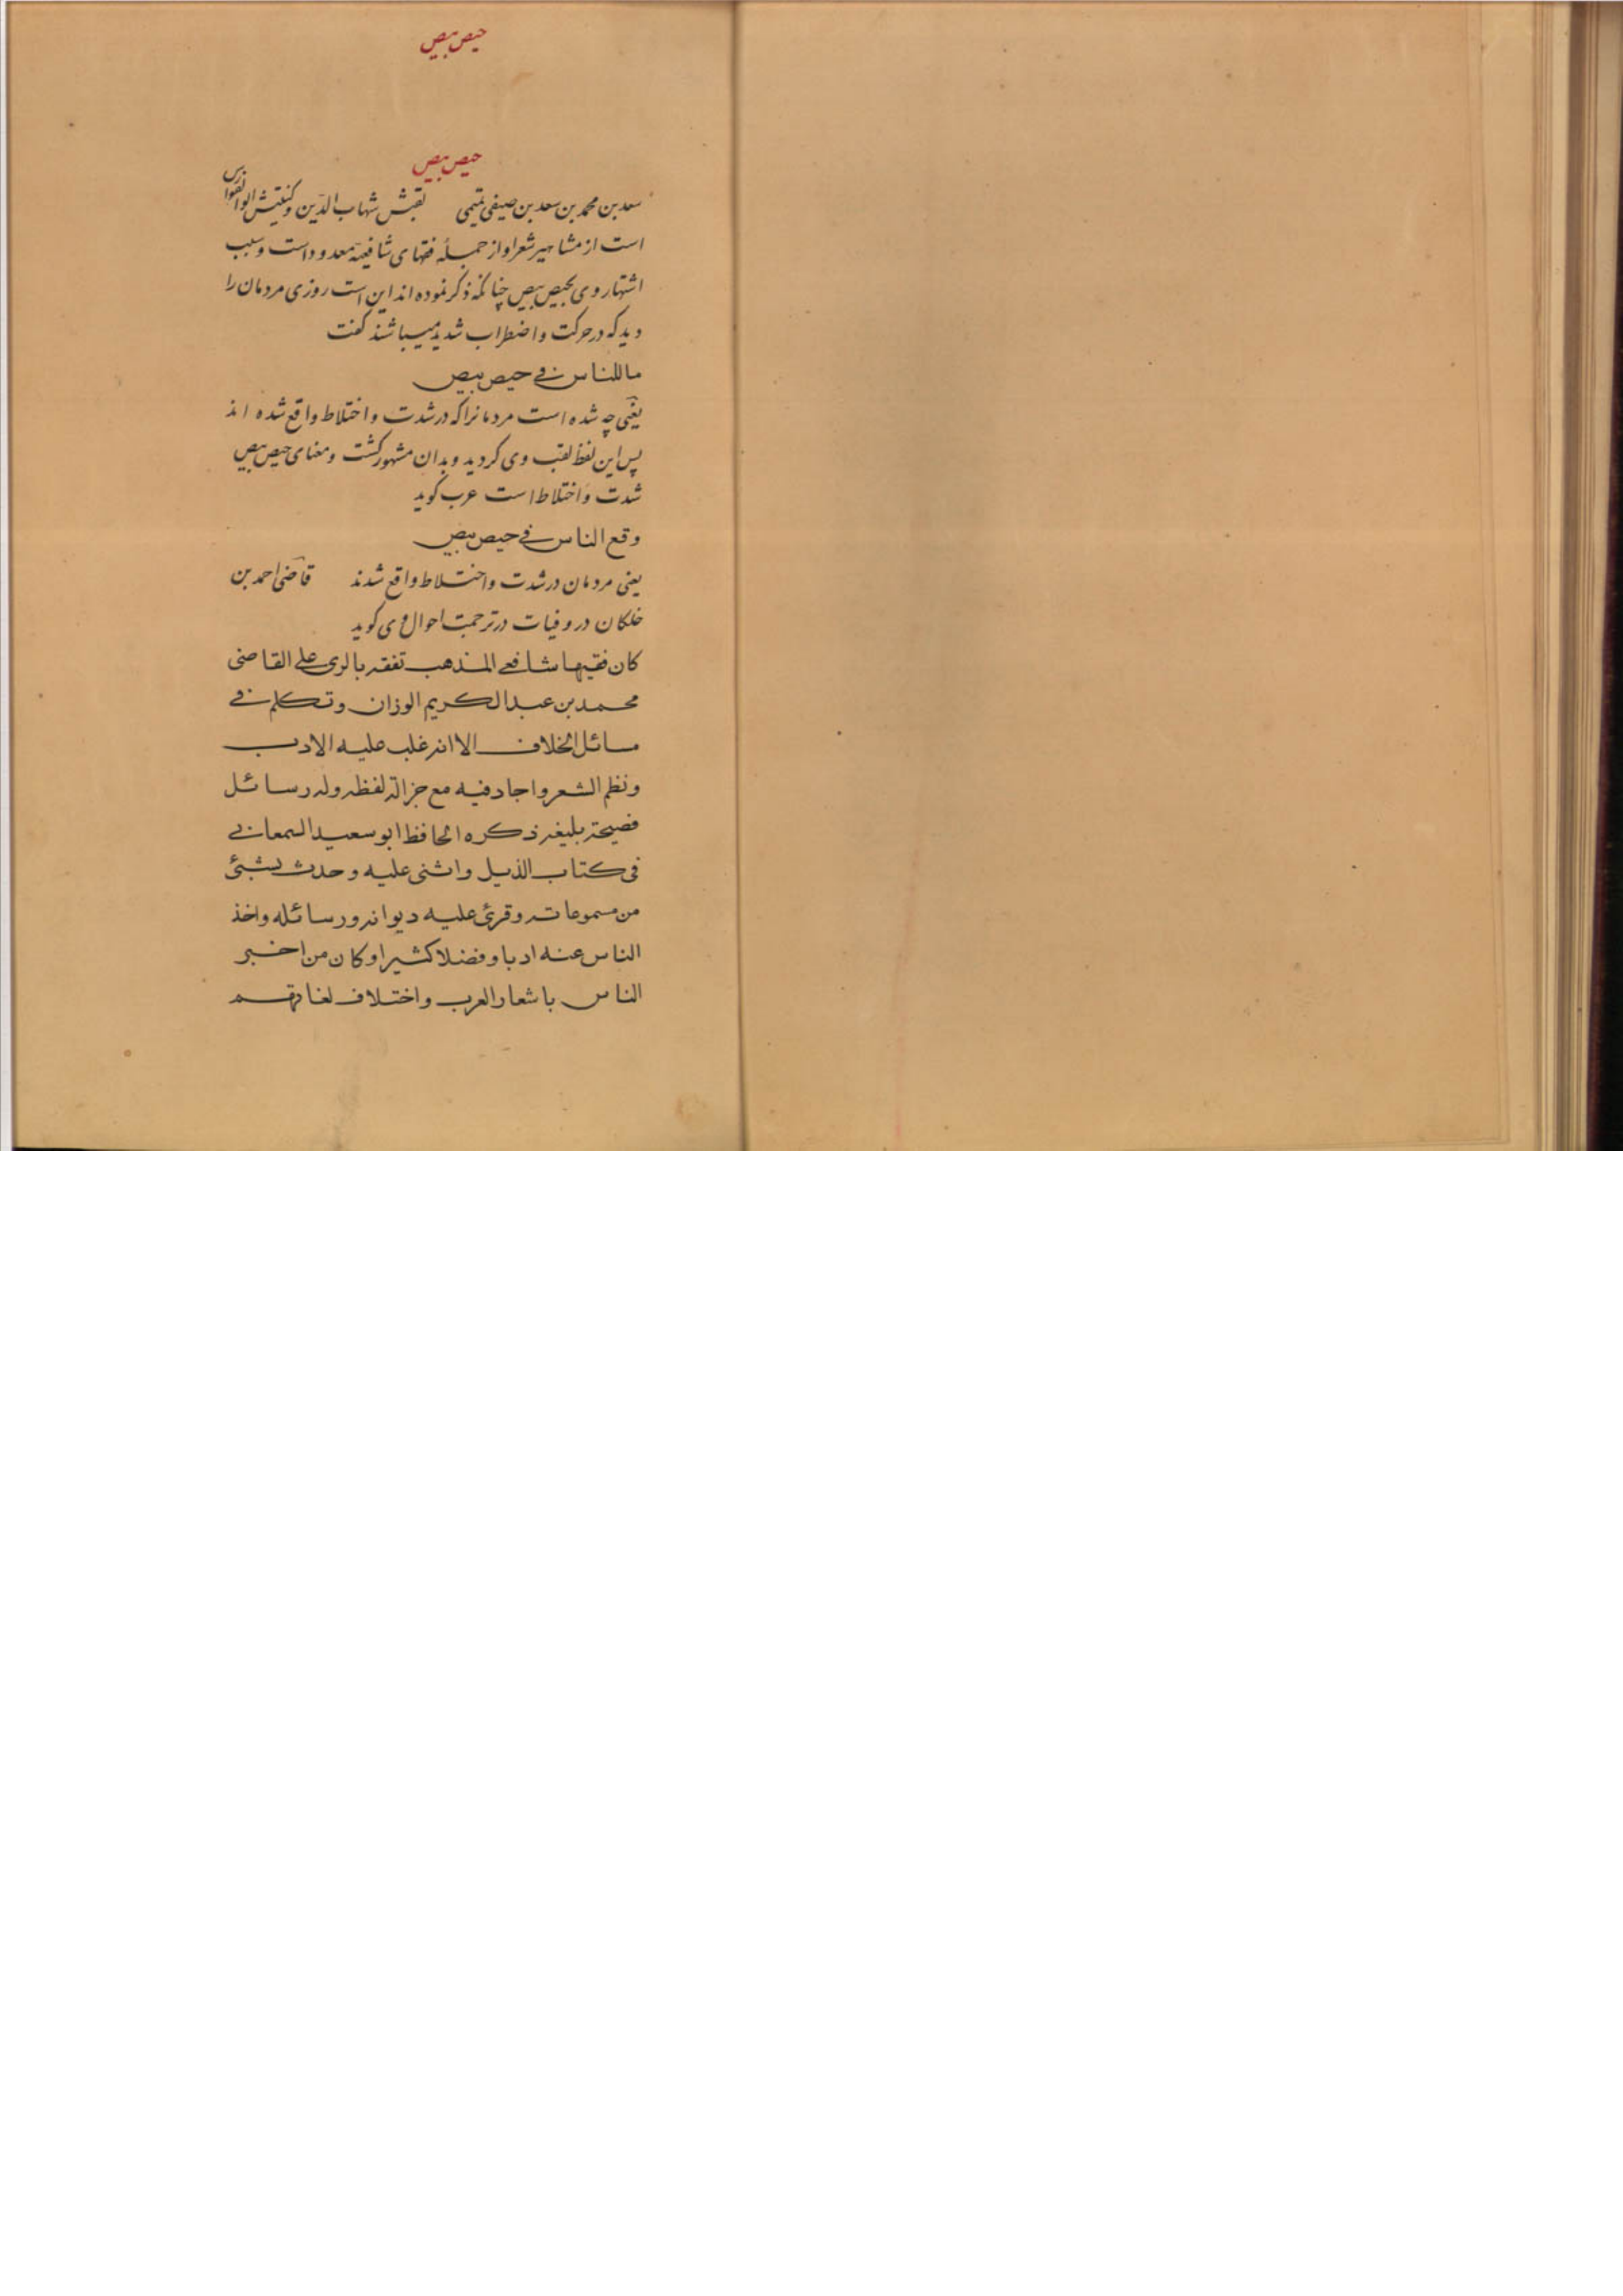 حیص بیص
حیص بیص
سعد بن محمد بن سعد بن صیفی تمیمی لقبش شهاب الدین و کنیتش ابو الفوارس
است از مشاهیر شعرا و از جملۀ فقهای شافعیّه معدود است و سبب
اشتهار وی بحیص بیص چنانکه ذکر نموده اند این است روزی مردمان را
دید که در حرکت و اضطراب شدید میباشند گفت
ما للناس فی حیص بیص
یعنی چه شده است مردمانرا که در شدت و اختلاط واقع شده اند
پس این لفظ لقب وی کردید و بدان مشهور کشت و معنای حیص بیص
شدت و اختلاط است عرب کوید
وقع الناس فی حیص بیص
یعنی مردمان در شدت و اختلاط واقع شدند قاضی احمد بن
خلکان در وفیات در ترجمت احوال وی کوید
کان فقیها شافعی المذهب تفقه بالری علی القاضی
محمد بن عبد الکریم الوزان و تکلم فی
مسائل الخلاف الا انه غلب علیه الادب
و نظم الشعر و اجاد فیه مع جزالة لفظه و له رسائل
فصیحة بلیغه ذکره الحافظ ابو سعید السمعانی
فی کتاب الذیل و اثنی علیه و حدث بشیئ
من مسموعاته و قرئ علیه دیوانه و رسائله و اخذ
الناس عنه ادبا و فضلا کثیرا و کان من اخبر
الناس باشعار العرب و اختلاف لغاتهم